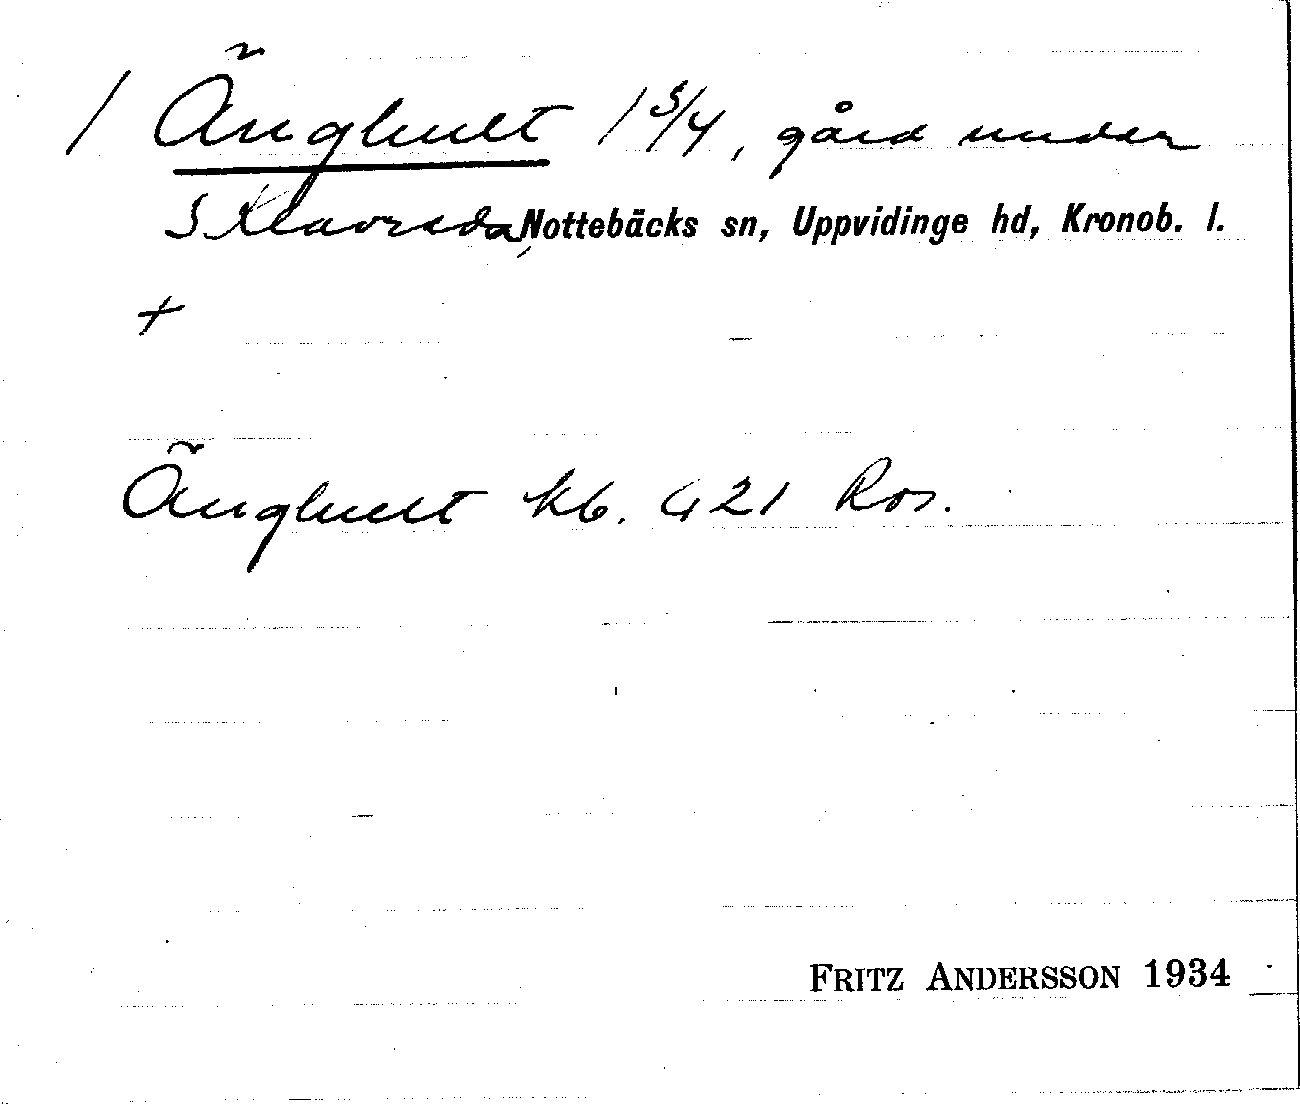 / Änghult 1 3/4, gård under
S Klavreda, Nottebäcks sn, Uppvidinge hd, Kronob. l.
+
Änghult kb. 421 Ros.
FRITZ ANDERSSON 1934